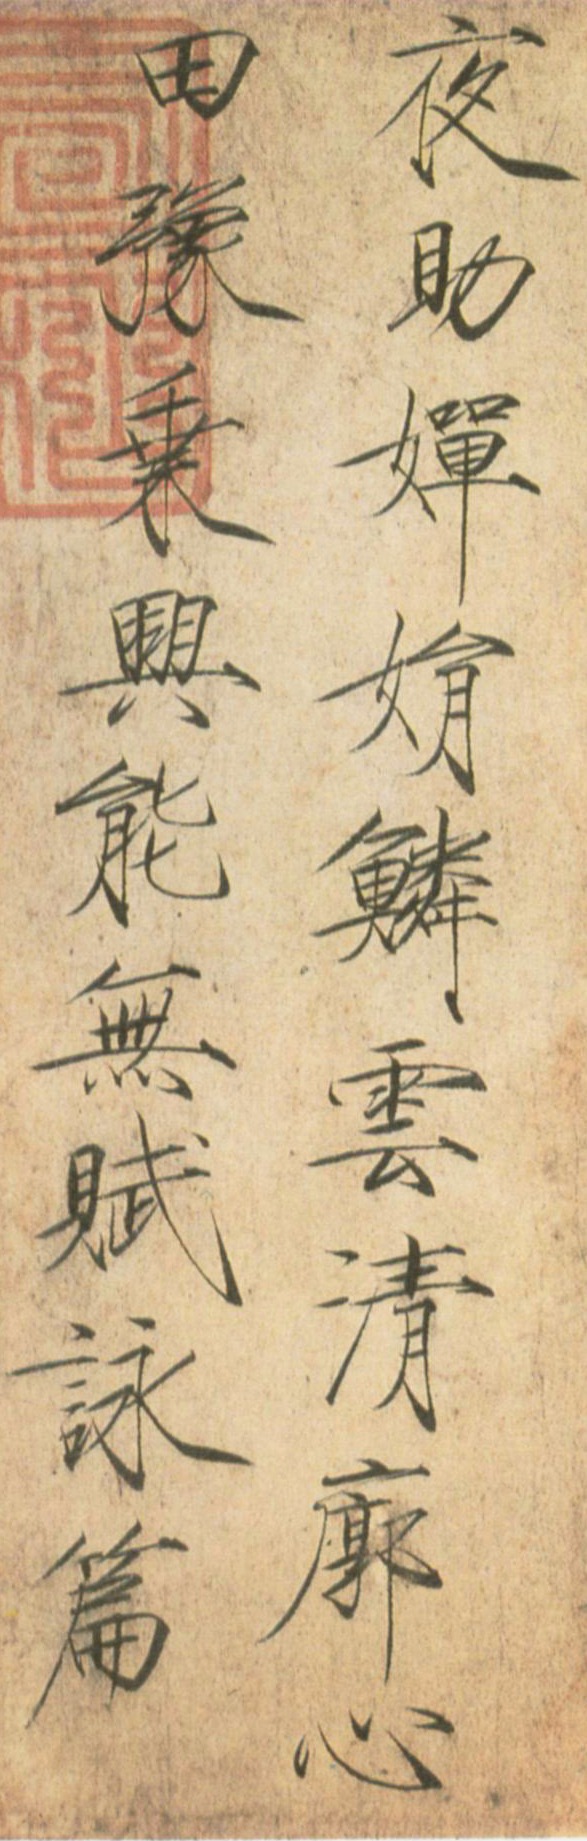 夜助嬋娟鱗雲清廓心
田豫秉興能無賦詠篇